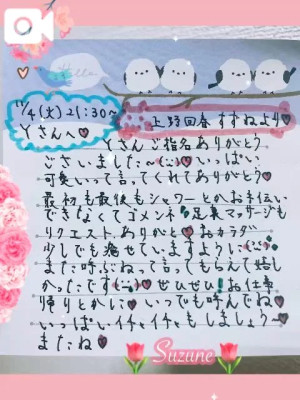 Hello
11/4(火)21:30〜
Yさんへ♡
上野回春 すずねより♡
Yさんご指名ありがとう
ございました〜♡いっぱい
可愛いって言ってくれてありがとう♡
最初も最後もシャワーとかお手伝い
できなくてゴメンネ 足裏マッサージも
リクエストありがと♡おカラダ
少しでも癒せていますように
また呼ぶねって言ってもらえて嬉し
かったです♡ぜひぜひ!お仕事
帰りとかに♡いつでも呼んでね♡
いっぱいイチャイチャもしましょう〜
またね♡
Suzune